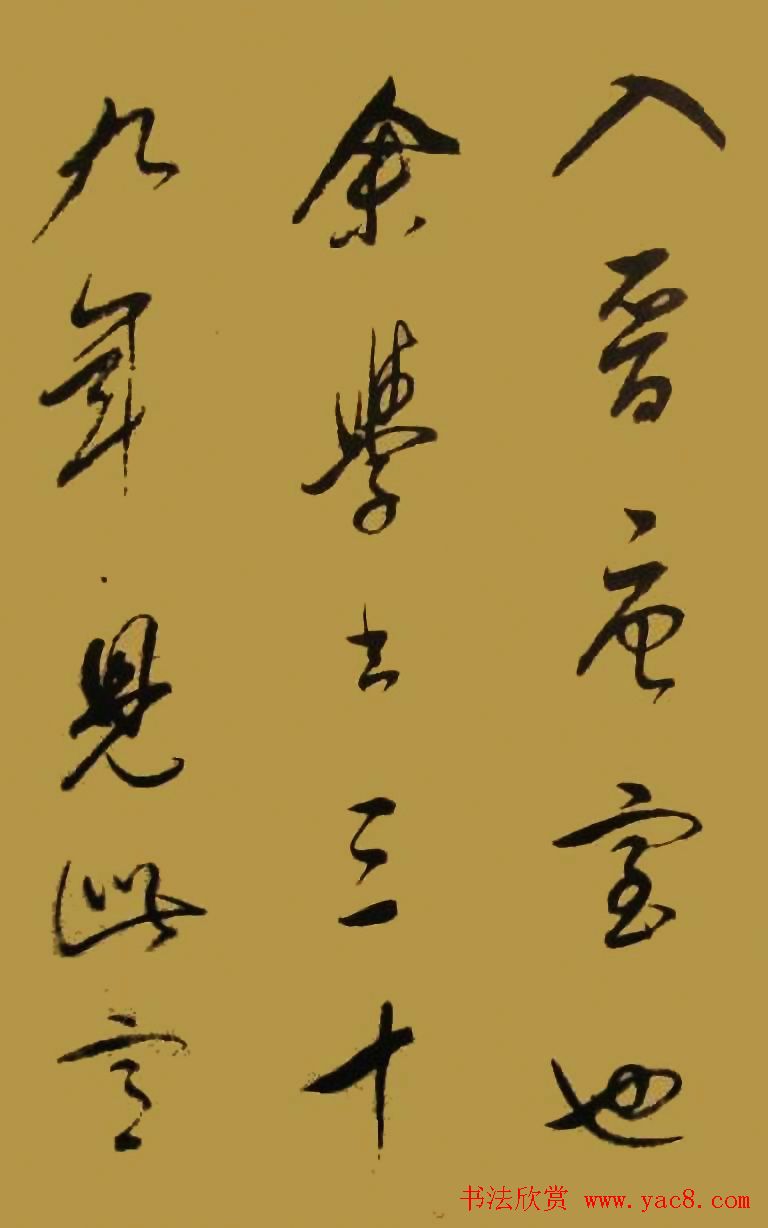 入晉唐室也
余學書三十
九年見此意
书法欣赏 www.yac8.com